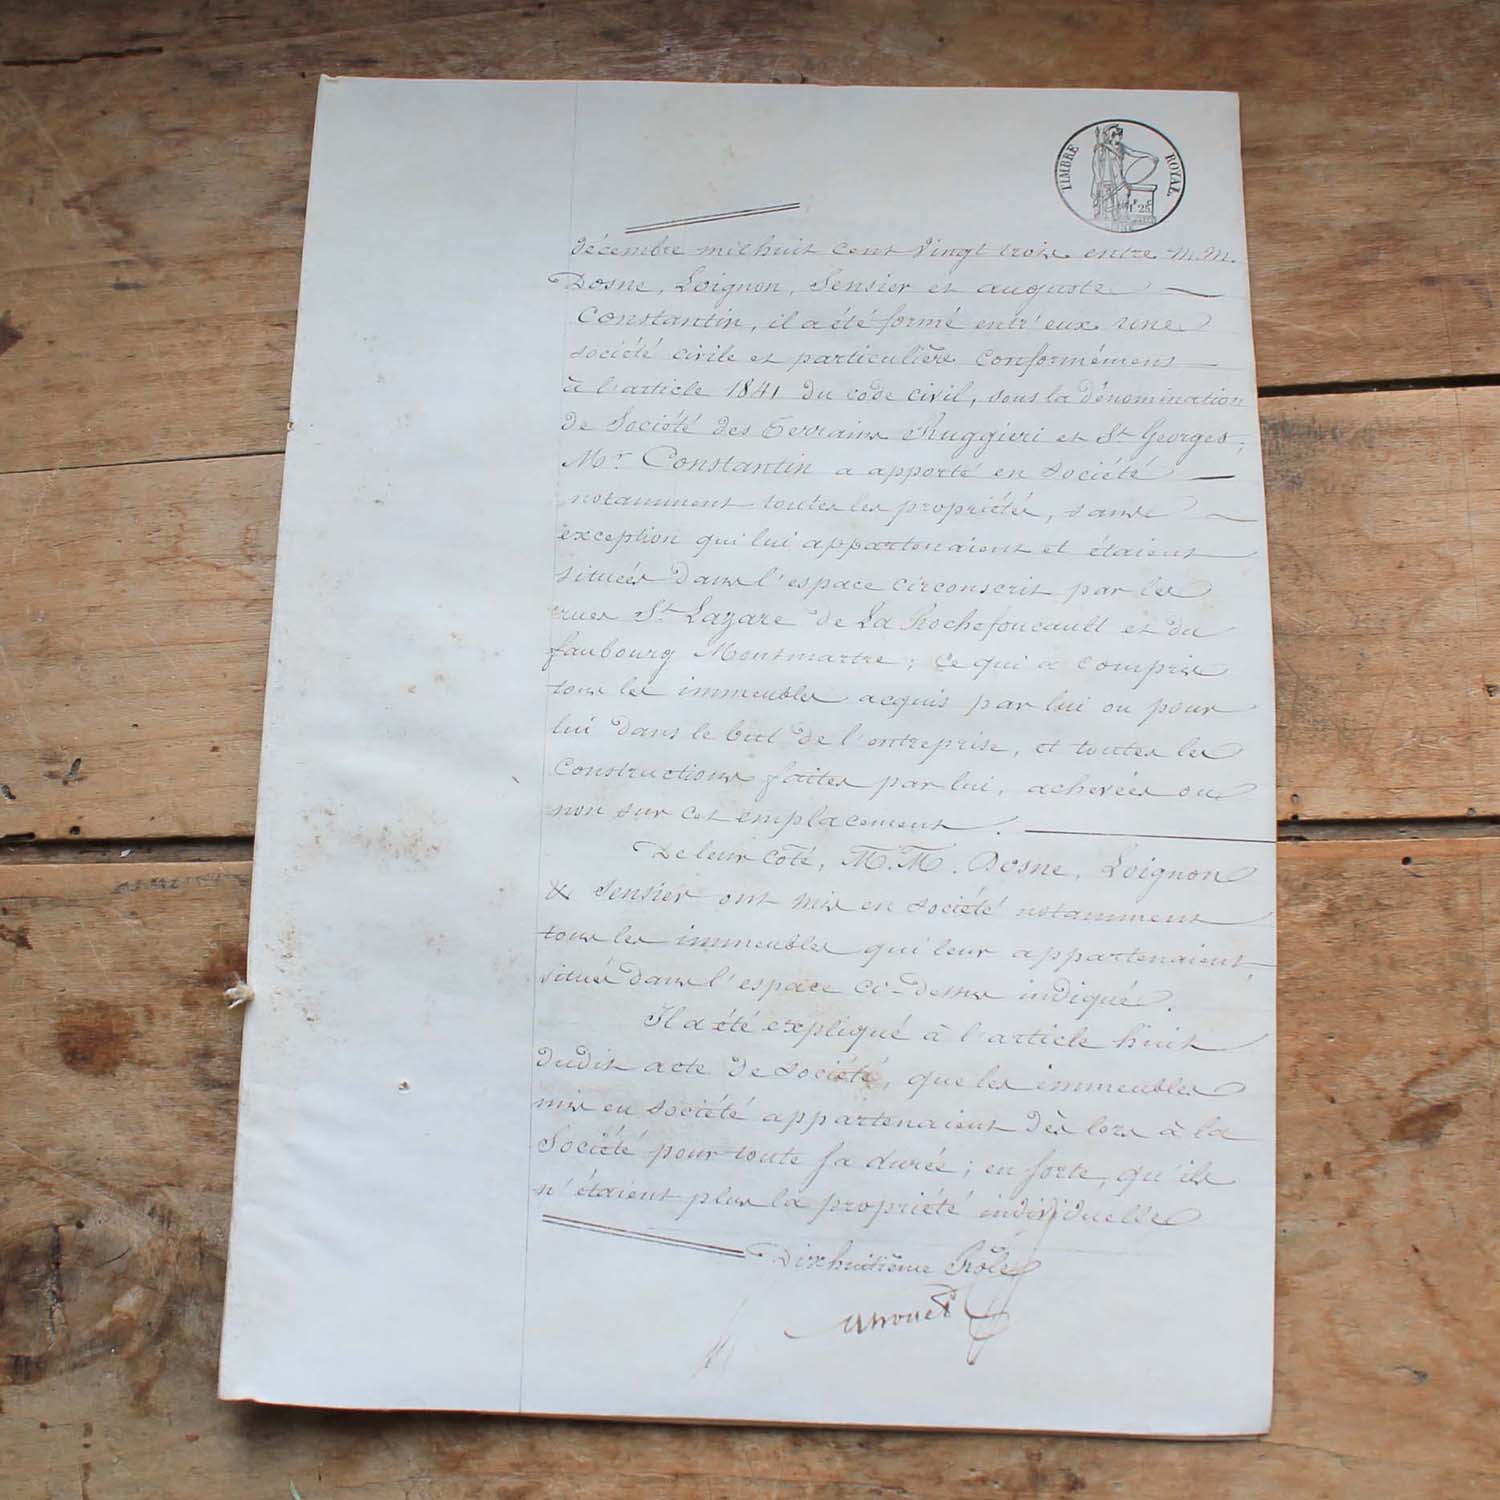 TIMBRE ROYAL
1F 25C
décembre mil huit cent vingt trois entre M.M.
Dosne, Loignon, Sensier et auguste
Constantin, il a été formé entr'eux une
société civile et particulière conformément
à l'article 1841 du code civil, sous la dénomination
de Société des Terrains Ruggieri et St Georges;
Mr Constantin a apporté en société
notamment toutes les propriétés, sans
exception qui lui appartenaient et étaient
situées dans l'espace circonscrit par les
rues St Lazare de La Rochefoucault et du
faubourg Montmartre; ce qui a compris
tous les immeubles acquis par lui ou pour
lui dans le but de l'entreprise, et toutes les
constructions faites par lui, achevées ou
non sur cet emplacement.
De leur côté, M.M. Dosne, Loignon
& Sensier ont mis en société notamment
tous les immeubles qui leur appartenaient,
situés dans l'espace ci-dessus indiqué.
Il a été expliqué à l'article huit
dudit acte de société, que les immeubles
mis en société appartenaient dès lors à la
Société pour toute sa durée; en sorte, qu'ils
n'étaient plus la propriété individuelle
Dixhuitième Rôle